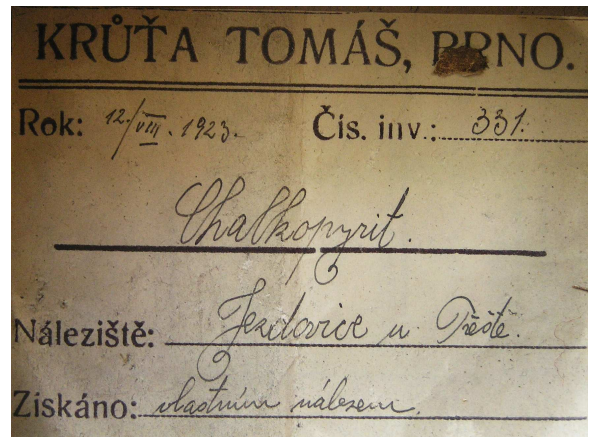 KRŮŤA TOMÁŠ, BRNO.
Rok: 12./VIII. 1923. Čís. inv.: 331.
Chalkopyrit.
Naleziště: Jezdovice u Třeště.
Získáno: vlastním nálezem.